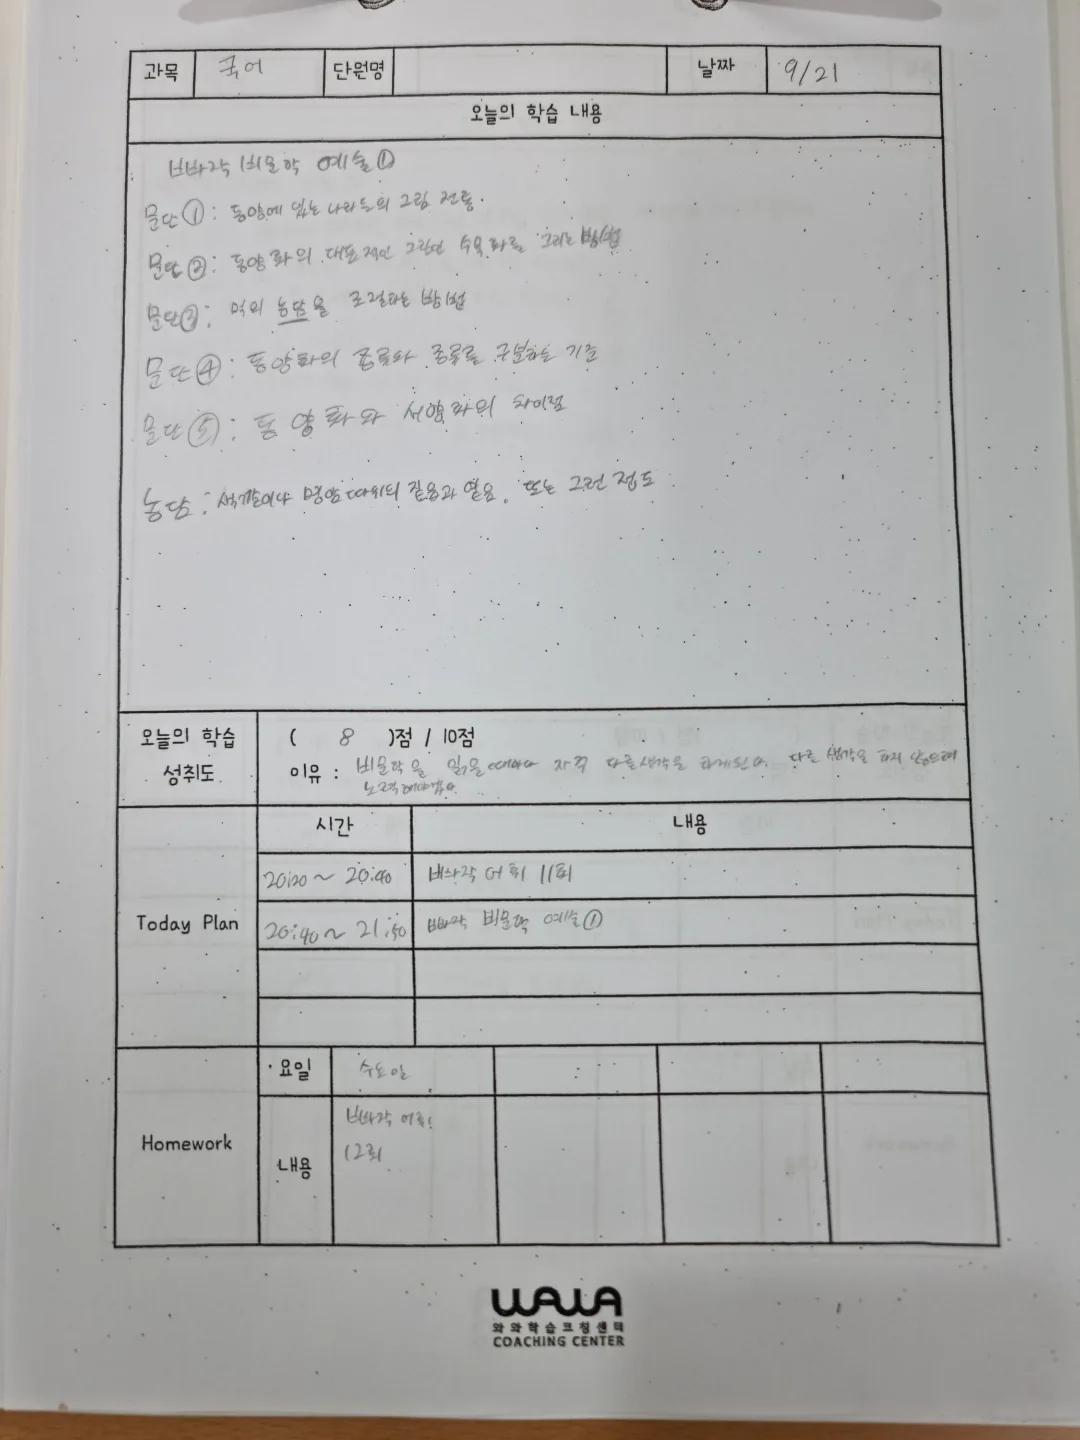 과목 국어 단원명 날짜 9/21
오늘의 학습 내용
빠작 비문학 예술①
문단①: 동양에 있는 나라들의 그림 전통.
문단②: 동양화의 대표적인 그림인 수묵화를 그리는 방법
문단③: 먹의 농담을 조절하는 방법
문단④: 동양화의 종류와 종류를 구분하는 기준
문단⑤: 동양화와 서양화의 차이점
농담: 색깔이나 명암 따위의 짙음과 옅음. 또는 그런 정도
오늘의 학습 성취도
( 8 )점 / 10점
이유 : 비문학을 읽을때마다 자꾸 다른생각을 하게된다. 다른 생각을 하지 않으려
노력해야겠다.
시간 내용
20:20 ~ 20:40 빠작 어휘 11회
Today Plan
20:40 ~ 21:50 빠작 비문학 예술①
요일 수요일
Homework
내용
빠작 어휘
12회
WAWA
와와학습코칭센터
COACHING CENTER